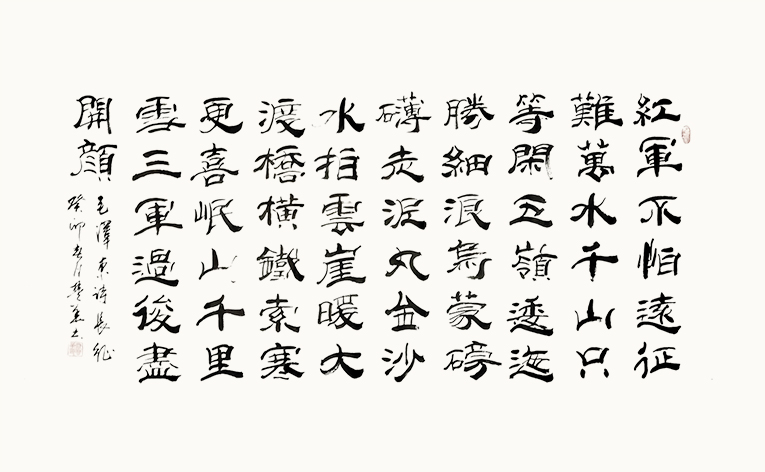 紅軍不怕遠征
難萬水千山只
等閑五嶺逶迤
騰細浪烏蒙磅
礴走泥丸金沙
水拍雲崖暖大
渡橋橫鐵索寒
更喜岷山千里
雪三軍過後盡
開顏
毛澤東詩長征
癸卯春月